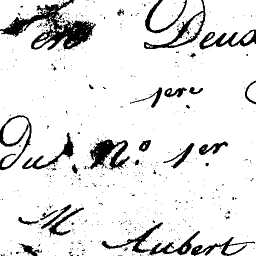 Deux
1ere
Du N.º 1er
M
Aubert